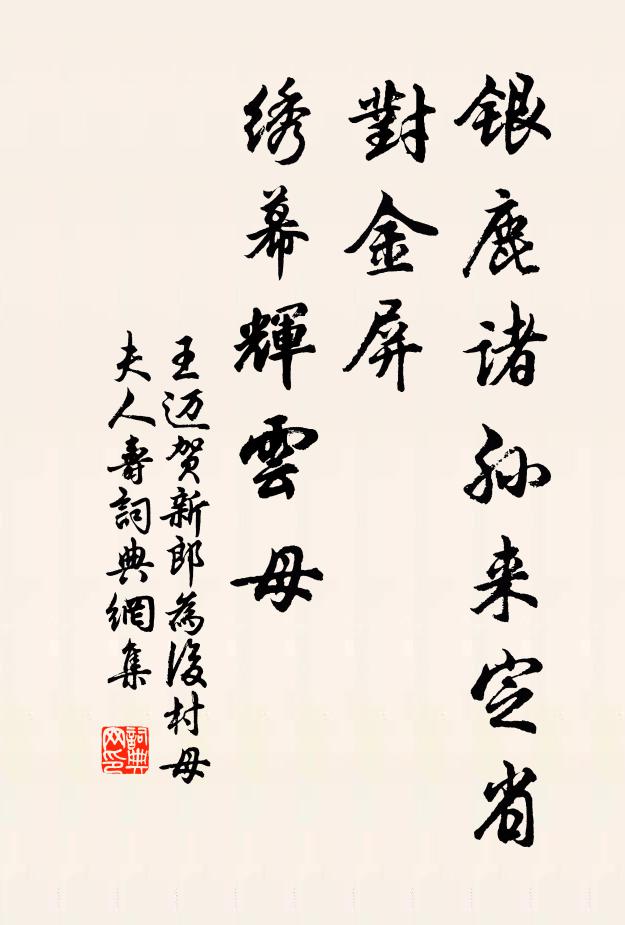 银鹿诸孙来定省
對金屏
绣幕輝雲母
王迈贺新郎為後村母
夫人壽詞典網集
詞典
网印